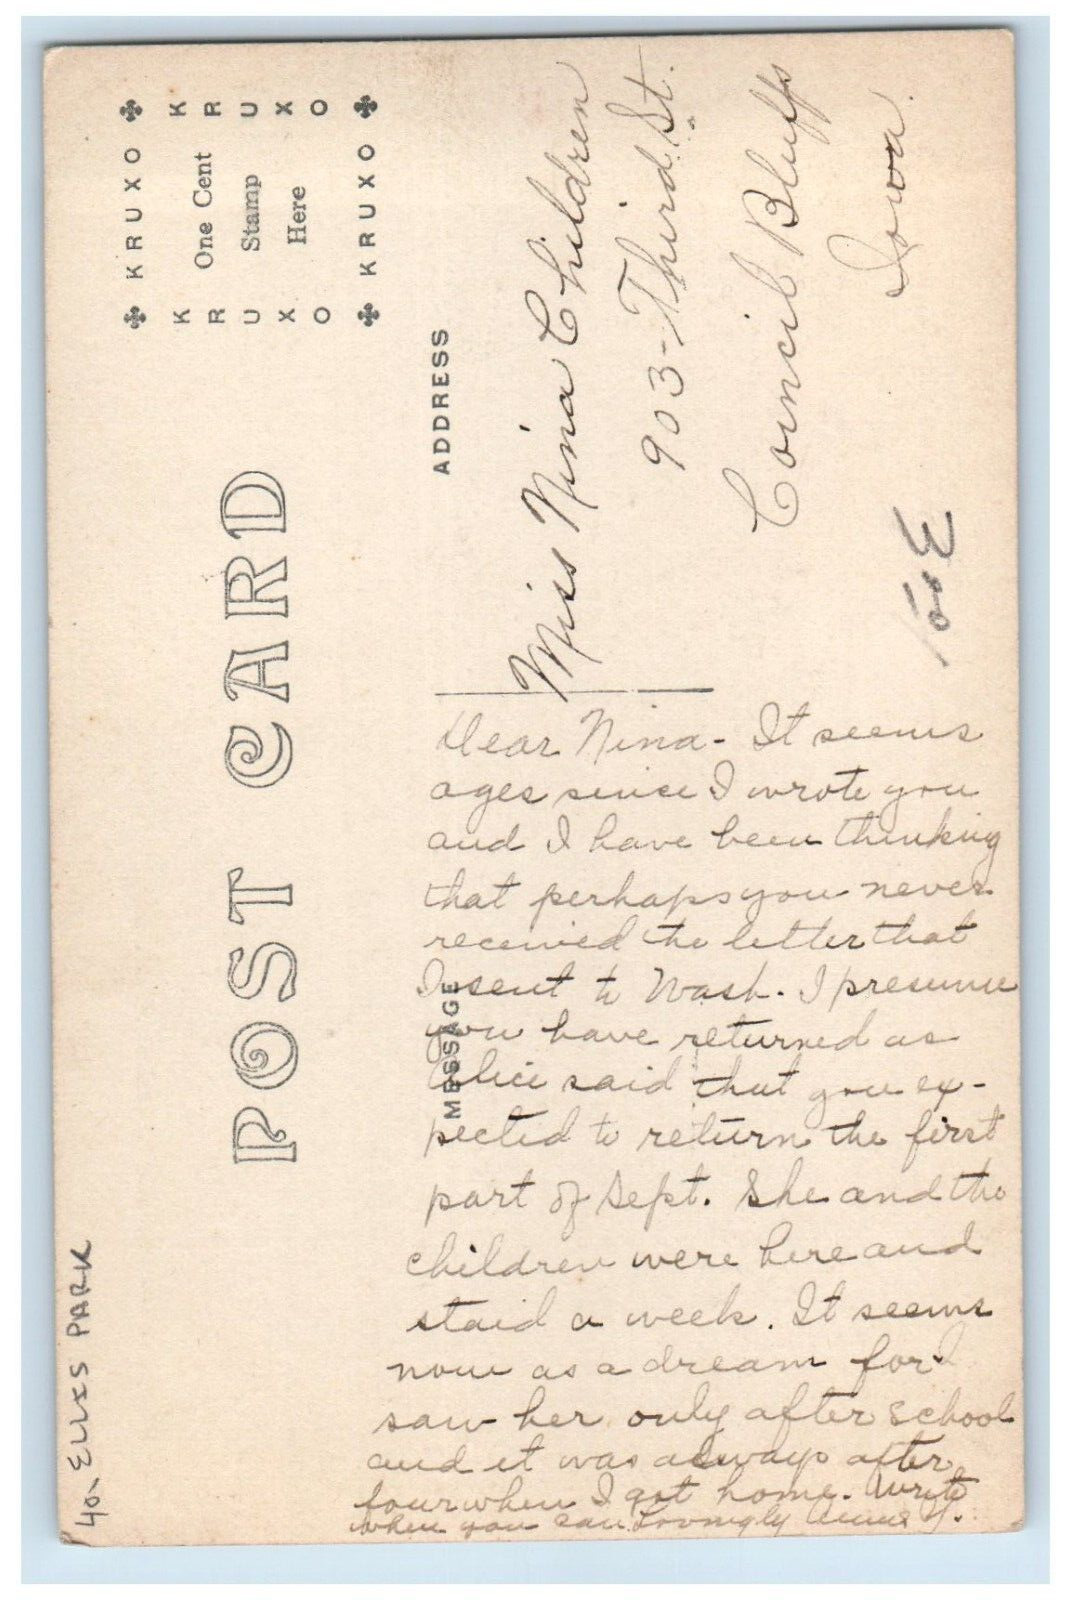 POST CARD
KRUXO
KRUXO
KRUXO
KRUXO
One Cent
Stamp
Here
ADDRESS
Miss Nina Children
903-Third St.
Council Bluffs
Iowa.
MESSAGE
Dear Nina- It seems
ages since I wrote you
and I have been thinking
that perhaps you never
received the letter that
I sent to Wash. I presume
you have returned as
Alice said that you ex-
pected to return the first
part of Sept. She and the
children were here and
staid a week. It seems
now as a dream for I
saw her only after school
and it was always after
four when I got home. Write
when you can. Lovingly
40- ELLIS PARK